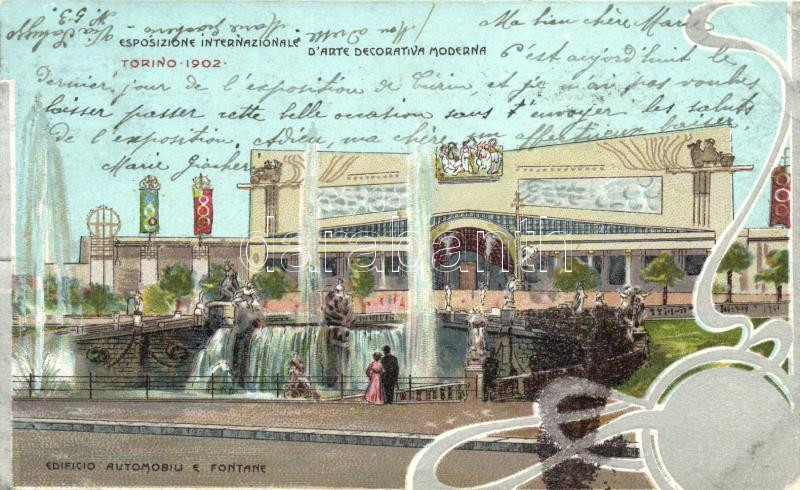 Via Saluzzo
N. 53.
ESPOSIZIONE INTERNAZIONALE D'ARTE DECORATIVA MODERNA
TORINO · 1902 ·
Ma bien chère Marie
C'est aujourd'hui le
dernier jour de l'exposition de Turin, et je n'ai pas voulu
laisser passer cette belle occasion sans t'envoyer les saluts
de l'exposition. Adieu, ma chère, un affectueux baiser.
Marie
darabanth
EDIFICIO AUTOMOBILI E FONTANE